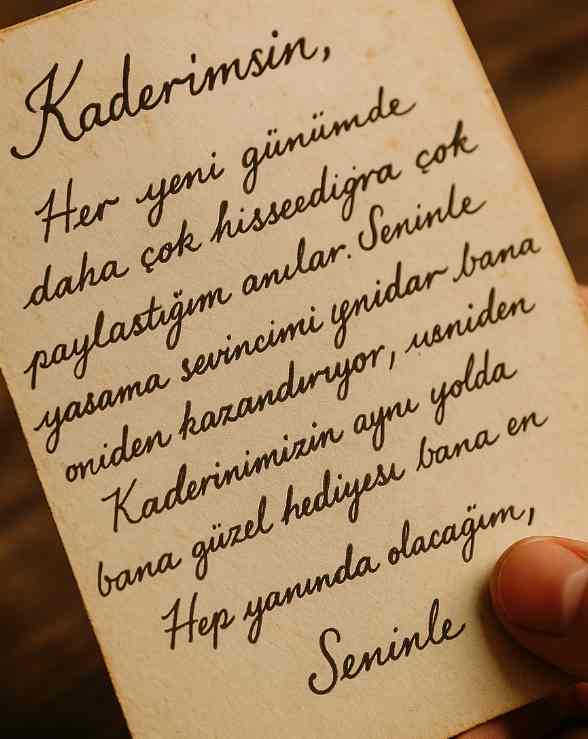 Kaderimsin,
Her yeni günümde
daha çok hisseediğra çok
paylastığım anılar. Seninle
yasama sevincimi ynidar bana
oniden kazandırıyor, usniden
Kaderinimizin aynı yolda
bana güzel hediyesı bana en
Hep yanında olacağım,
Seninle